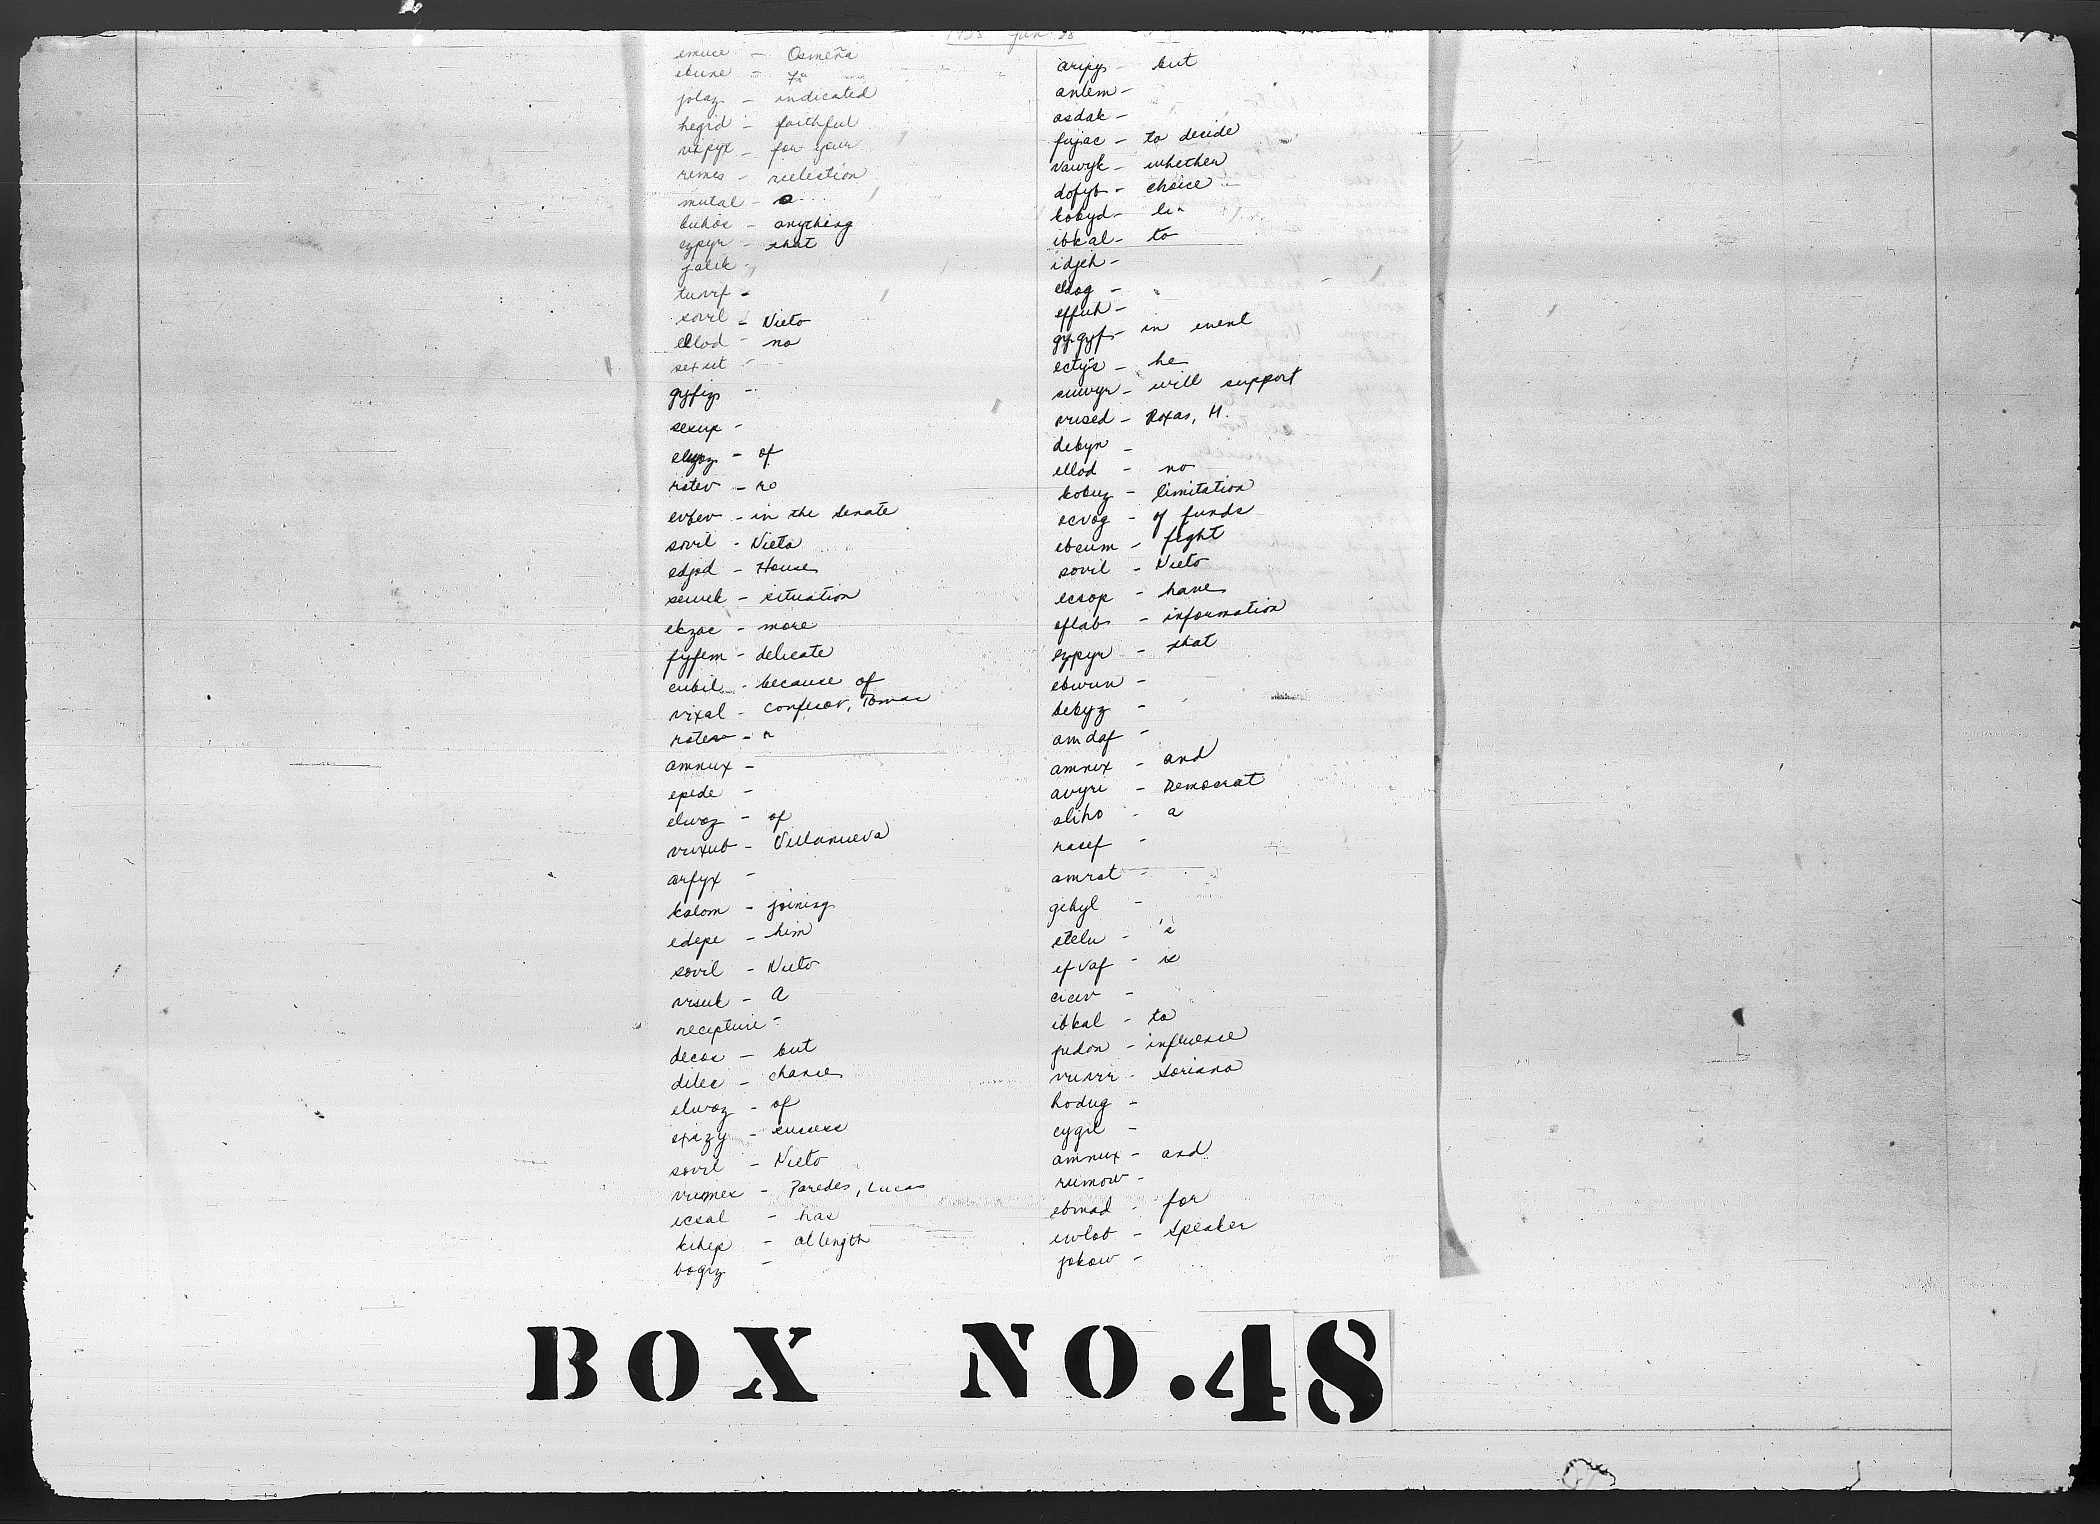 1935 Jan 28
emuce - Osmeña
ebune -
jolaz - indicated
hegid - faithful
vapyx - for your
remes - reelection
mutal - a
buhos - anything
ezpyr - that
jalik -
tuvrf -
sovil - Nieto
ellod - no
sexut -
gyfiz -
sexup -
elwoz - of
rotev - re
evbev - in the Senate
sovil - Nieto
edjod - House
sewek - situation
ekzac - more
fyfem - delicate
cubil - because of
vixal - Confesor, Tomas
rotew - r
amnux -
epede -
elwoz - of
vuxub - Villanueva
arfyx -
kalom - joining
edepe - him
sovil - Nieto
vrsuk - A
recipture -
decos - but
dilec - chances
elwoz - of
exizy - success
sovil - Nieto
vrumex - Paredes, Lucas
icsal - has
kihep - at length
bogiz -
aripy - but
anlem -
asdak -
fujac - to decide
vawyk - whether
dofyb - choice
kobyd -
ibkal - to
idjeh -
elsog -
effuh -
gygyf - in event
ectys - he
suwyr - will support
vrused - Roxas, M.
debyn -
ellod - no
kobuz - limitation
ocvog - of funds
ebcum - fight
sovil - Nieto
ecsop - have
oflab - information
ezpyr - that
ebwun -
bekyz -
amdaf -
amnux - and
avyri - Democrat
aliho - a
rasef -
amrat -
gehyl -
etelu - 's
efvaf - is
cicev -
ibkal - to
judon - influence
vruvir - Soriano
hodug -
cygil -
amnux - and
rumow -
ebmad - for
uvlob - Speaker
jokow -
BOX NO. 48